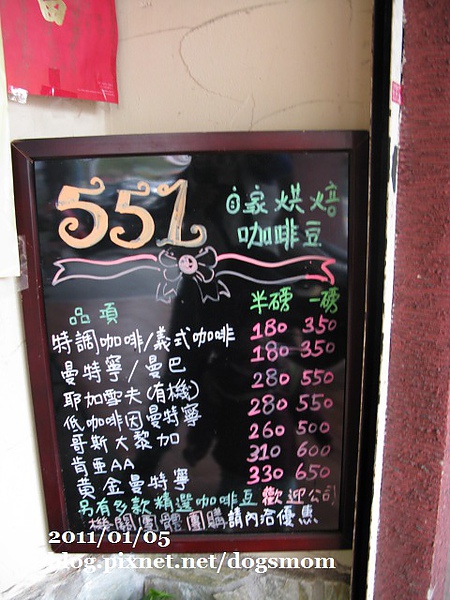 551
自家烘焙
咖啡豆
品項 半磅 一磅
特調咖啡/義式咖啡 180 350
曼特寧/曼巴 180 350
耶加雪夫(有機) 280 550
低咖啡因曼特寧 280 550
哥斯大黎加 260 500
肯亞AA 310 600
黃金曼特寧 330 650
另有多款精選咖啡豆歡迎公司
機關團體團購請內洽優惠
2011/01/05
blog.pixnet.net/dogsmom